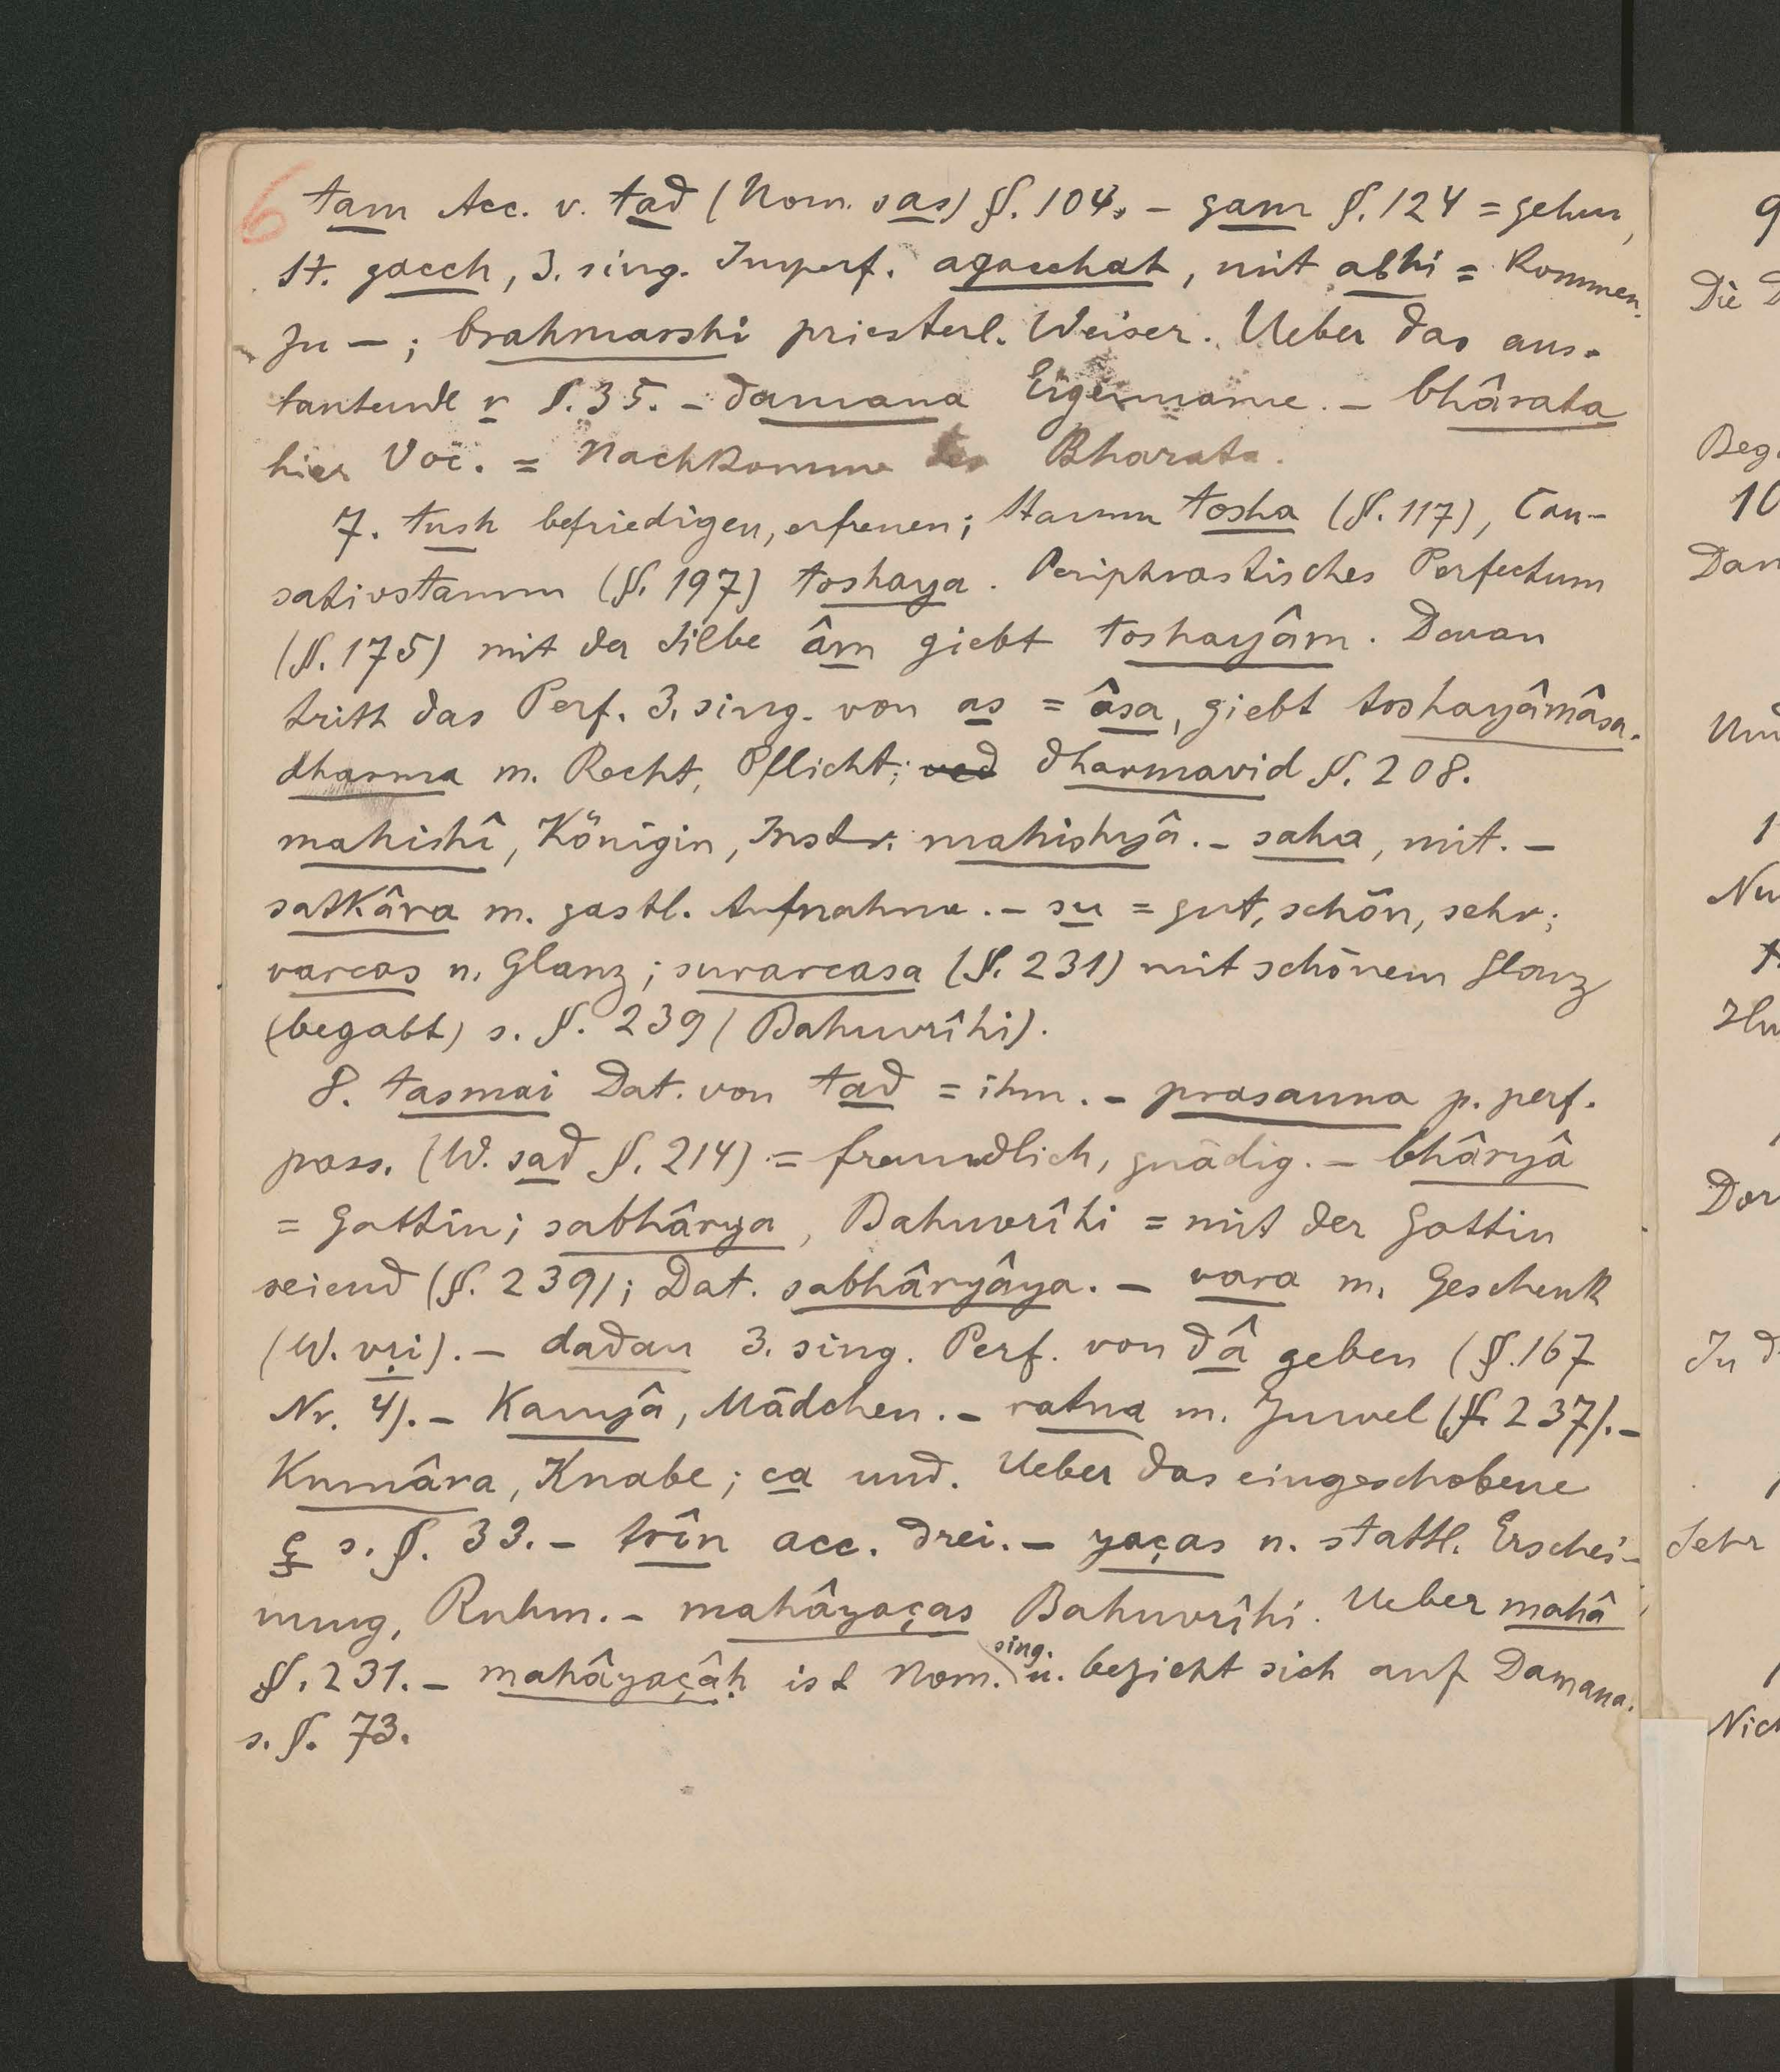 6 tam Acc. v. tad (Nom. sas) §. 104. – gam §. 124 = gehen,
St. gacch, 3. sing. Imperf. agacchat, mit abhi = kommen
zu – ; brahmarshi priesterl. Weiser. Ueber das aus-
lautende r §. 35. – damana Eigenname. – bhârata
hier Voc. = Nachkomme des Bharata.
7. tush befriedigen, erfreuen; Stamm tosha (§. 117), Cau-
sativstamm (§. 197) toshaya. Periphrastisches Perfectum
(§. 175) mit der Silbe âm giebt toshayâm. Daran
tritt das Perf. 3. sing. von as = âsa, giebt toshayâmâsa.
dharma m. Recht, Pflicht; ved dharmavid §. 208.
mahishî, Königin, Instr. mahishyâ. – saha, mit. –
satkâra m. gastl. Aufnahme. – su = gut, schön, sehr;
varcas n. Glanz; suvarcasa (§. 231) mit schönem Glanz
(begabt) s. §. 239 (Bahuvrîhi).
8. tasmai Dat. von tad = ihm. – prasanna p. perf.
pass. (W. sad §. 214) = freundlich, gnädig. – bhâryâ
= Gattin; sabhârya, Bahuvrîhi = mit der Gattin
seiend (§. 239); Dat. sabhâryâya. – vara m. Geschenk
(W. vṛi). – dadau 3. sing. Perf. von dâ geben (§. 167
Nr. 4). – Kanyâ, Mädchen. – ratna m. Juwel (§. 237). –
Kumâra, Knabe; ca und. Ueber das eingeschobene
ç s. §. 33. – trîn acc. drei. – yaças n. stattl. Erschei-
nung, Ruhm. – mahâyaças Bahuvrîhi. Ueber mahâ
§. 231. – mahâyaçâḥ ist Nom. sing. u. bezieht sich auf Damana.
s. §. 73.
9
Die D
Beg
10
Dan
Und
1
Nu
Dar
In d
Sehr
Nich